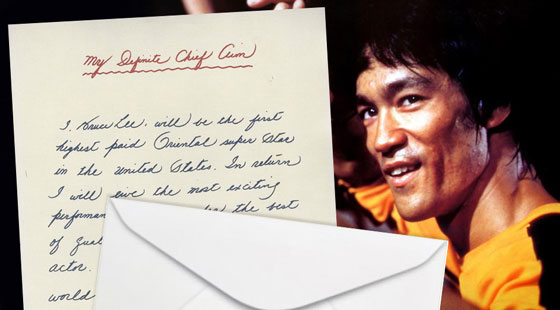 My Definite Chief Aim
I, Bruce Lee, will be the first
highest paid Oriental super star
in the united States. In return
I will give the most exciting
performan the best
of Qual
actor.
world